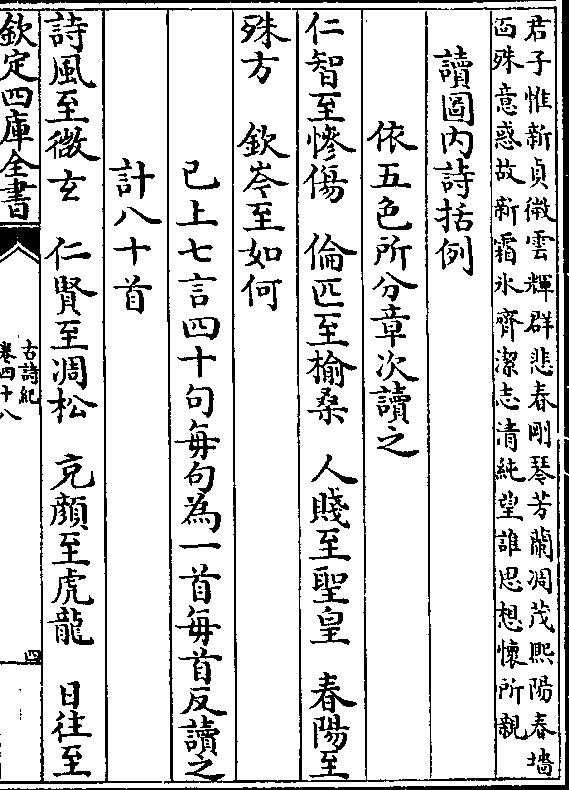 君子惟新貞微雲輝群悲春剛琴芳蘭凋茂熙陽春墻
面殊意惑故新霜氷齊潔志清純望誰思想懷所親
讀圖内詩括例
依五色所分章次讀之
仁智至慘傷　倫匹至榆桑　人賤至聖皇　春陽至
殊方　欽岑至如何
已上七言四十句每句為一首每首反讀之
計八十首
詩風至微玄　仁賢至凋松　克顔至虎龍　日往至
欽定四庫全書
古詩紀
卷四十八
四